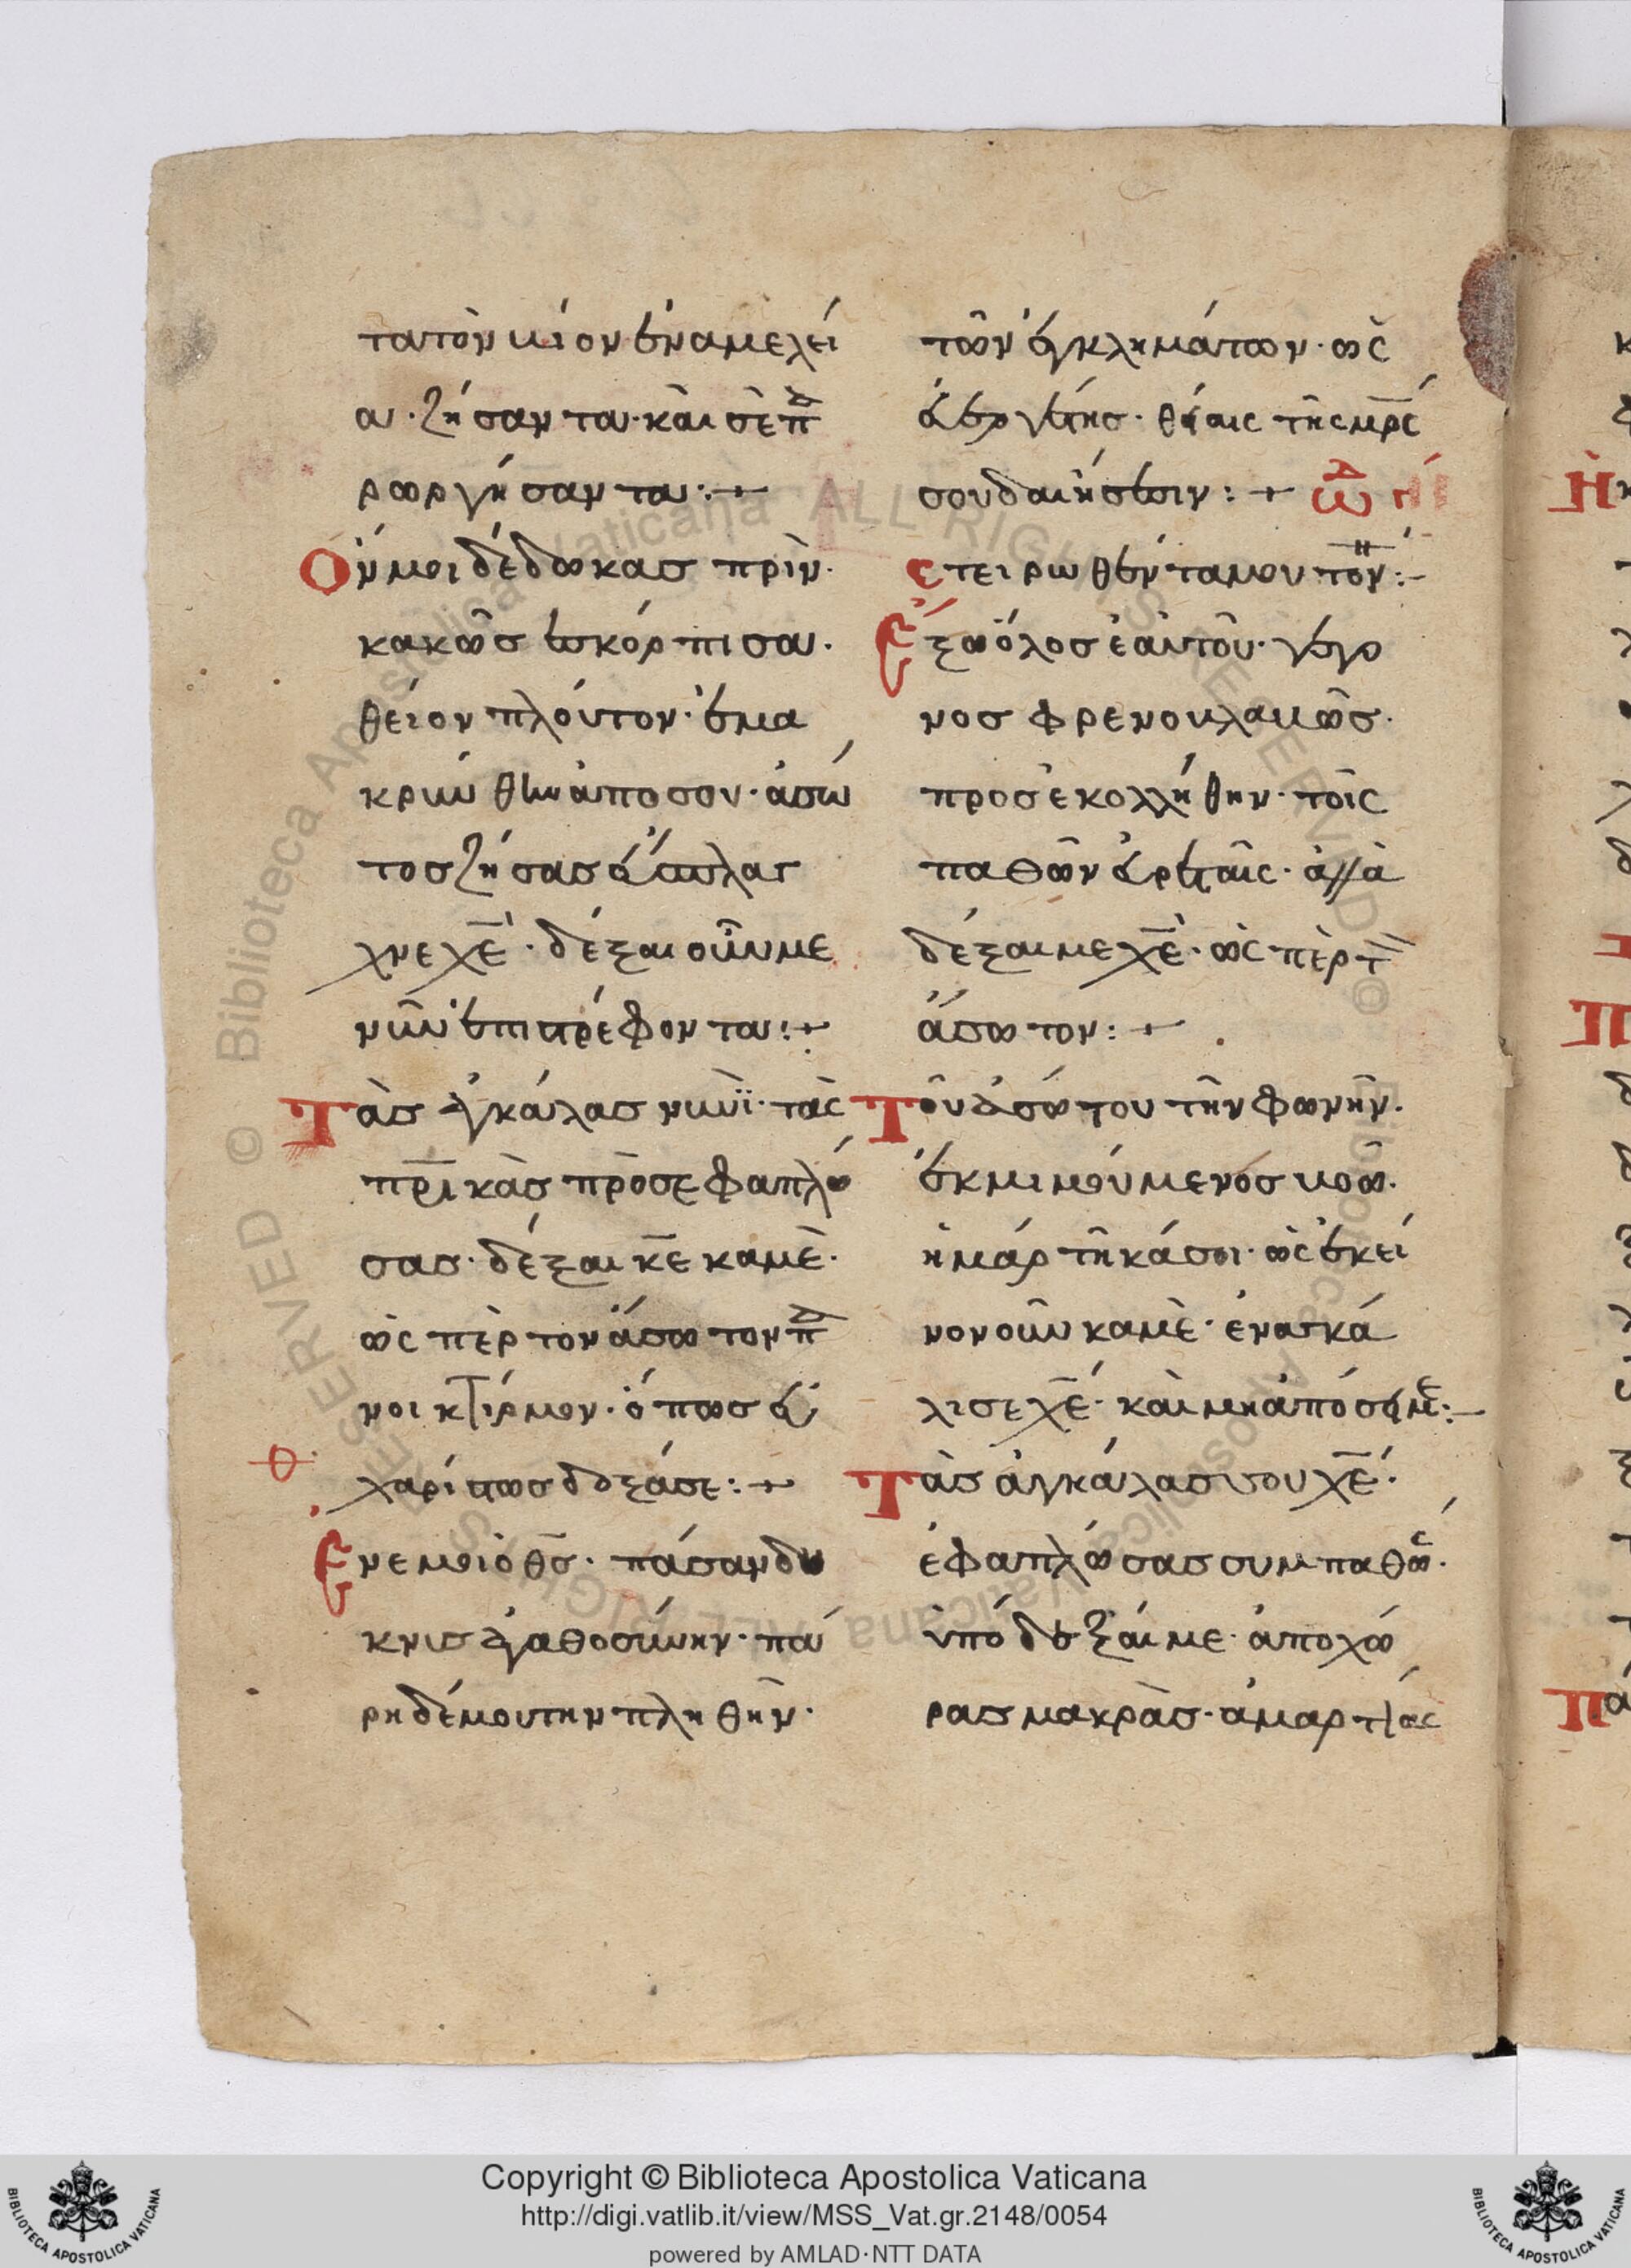 τατὸν βίον ἐν ἀμελεί
α· ζήσαντα· καὶ σὲ πα
ρωργήσαντα:+
Ὃν μοι δέδωκας πρὶν·
κακῶς ἐσκόρπισα·
θείον πλούτον· ἐμα
κρύνθην ἀπο σου· ἀσώ
τος ζήσας εὔσπλαγ
χνε χε̅· δέξαι οὖν με
νῦν ἐπιστρέφοντα:+
Τὰς ἀγκάλας νυνῒ· τὰς
πρ̅ικὰς προσεφαπλώ
σας· δέξαι κ̅ε καμὲ·
ὡς πὲρ τον ἄσωτον πα
νοικτίρμον· ὅπως εὐ
χαρίστως δοξάσε:+
θ
Ένεμοι ὁ θ̅ς· πάσαν δει
κνὺς ἀγαθοσύνην· πά
ριδέ μου την πληθὴν·
τῶν ἐγκλημάτων· ὡς
εὐεργέτης· θείαις τῆς μρ̅ς
σου δαιήσεσιν:+ ὠδ
Στειρωθέντα μου τὸν:-
Ἔξω ὅλος ἐαυτοῦ· γέγο
νος φρενουλαβῶς·
προσεκολλήθην· τοῖς
παθῶν εὑρεταῖς· ἀλλὰ
δέξαι με χε̅· ὡς πὲρ τ
ἄσωτον:+
Τοῦ ἀσώτου τὴν φωνὴν·
ἐκμιμούμενος βοῶ·
ἡμάρτηκά σοι· ὡς ἐκεί
νον οὖν καμὲ· ἐναγκά
λισε χε̅· καὶ μὴ ἀπόσει με:-
Τὰς ἀγκάλας σου χε̅·
ἐφαπλώσας συμπαθῶς·
ὑπόδεξαί με· ἀπο χώ
ρας μακρὰς· ἁμαρτίας
Copyright © Biblioteca Apostolica Vaticana
http://digi.vatlib.it/view/MSS_Vat.gr.2148/0054
powered by AMLAD·NTT DATA
BIBLIOTECA APOSTOLICA VATICANA
BIBLIOTECA APOSTOLICA VATICANA